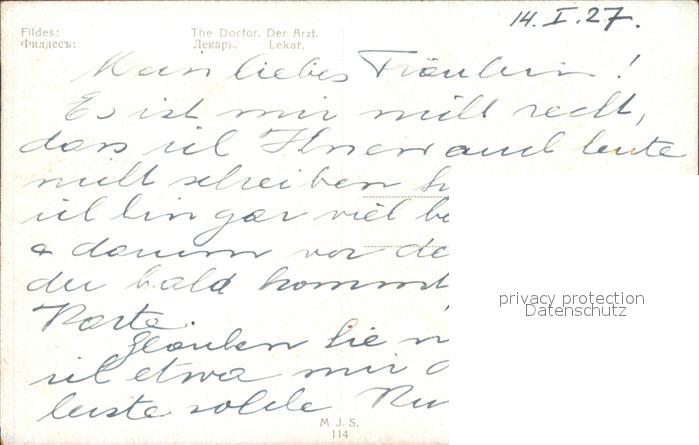 Fildes: The Doctor. Der Arzt.
Филдесъ: Лекарь. Lékař.
14. I. 27.
Mein liebes Fräulein!
Es ist mir nicht recht,
dass ich Ihnen auch heute
nicht schreiben
ich bin gar viel
& darum vor
der bald kommt
Karte.
Glauben Sie
ich etwa mir
leiste solche
privacy protection
Datenschutz
M J. S.
114